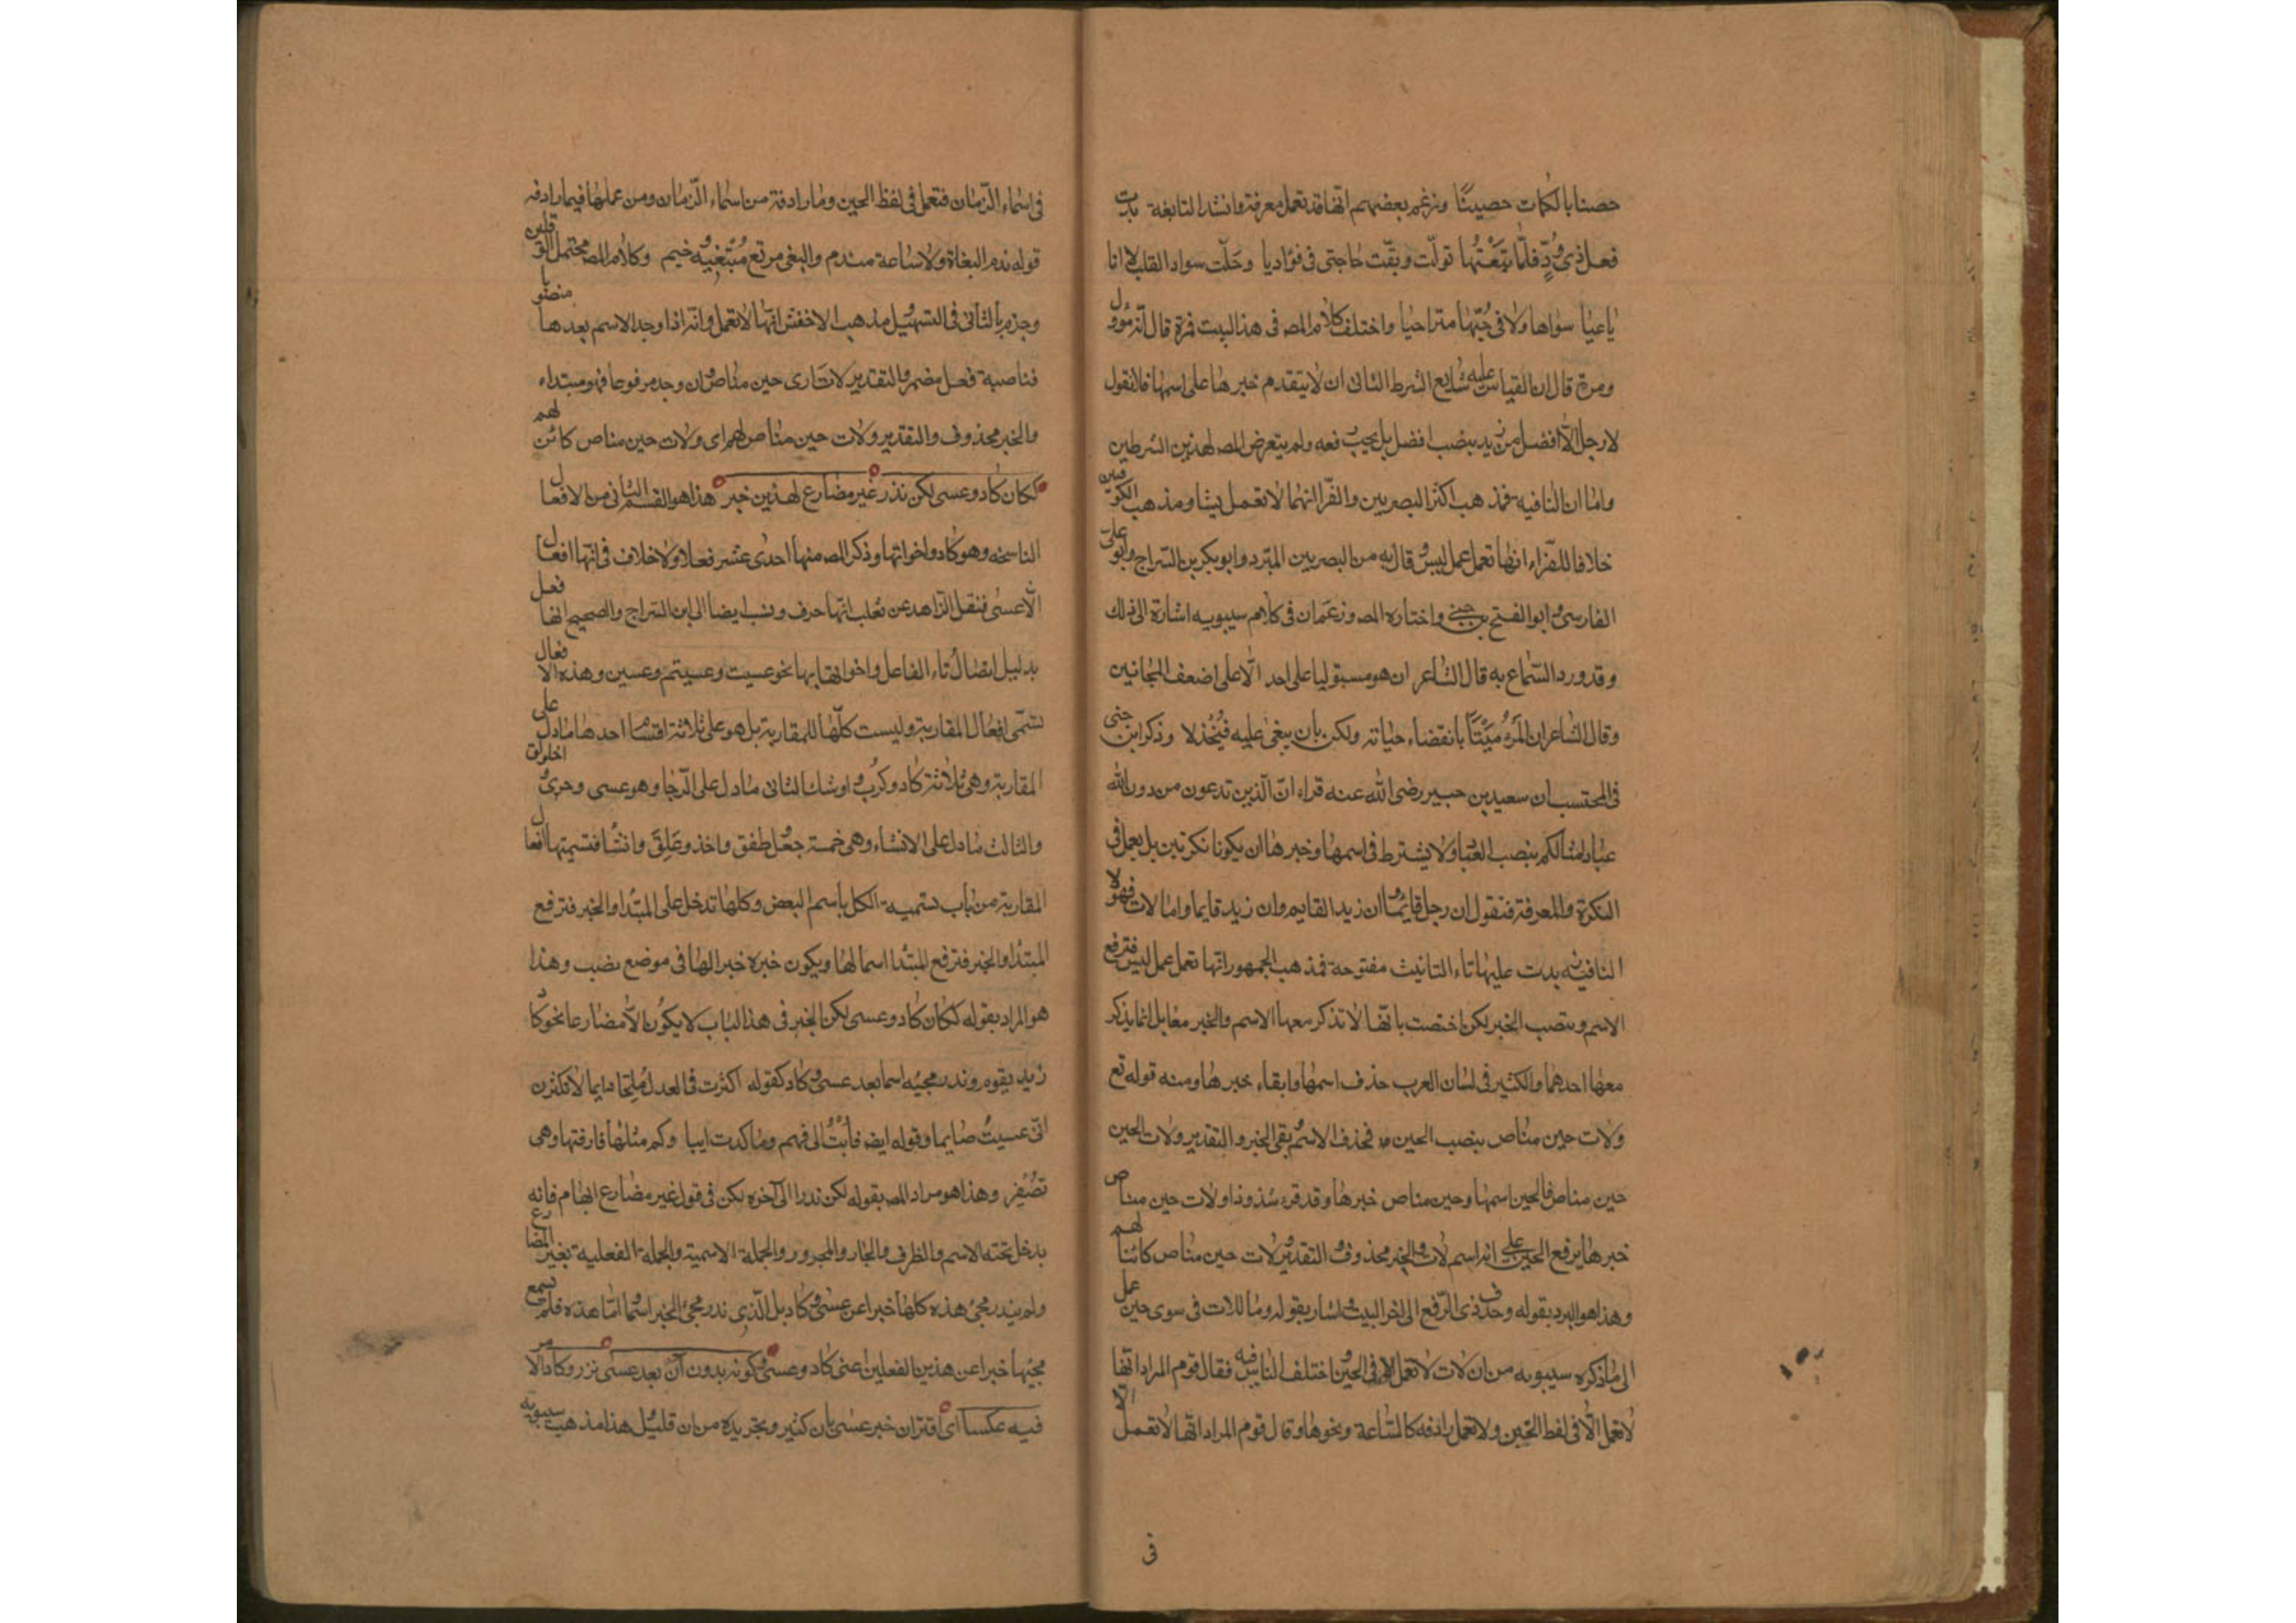 حصنا بالكمات حصينًا وزعم بعضهم انها قد تعمل معرفة وانشد النابغة بدت
فعل ذي ودٍّ فلمّا تبعتُها تولّت وبقّت حاجتي في فؤاديا وحَلّت سواد القلب لا انا
باغيا سواها ولا في حُبّها متراخيا واختلف كلام المص في هذا البيت فمرة قال انه مؤول
ومرة قال ان القياس عليه شايع الشرط الثاني ان لا يتقدم خبرها على اسمها فلا تقول
لا رجل الّا افضل من زيد بنصب افضل بل يجب رفعه ولم يتعرض المص لهذين الشرطين
واما ان النافيه فمذهب اكثر البصريين والفرّا انهما لا تعمل شيئا ومذهب الكوفيين
خلافا للفرّاء انها تعمل عمل ليس وقال به من البصريين المبرّد وابو بكر بن السراج وابو علي
الفارسي وابو الفتح بن جني واختاره المص وزعم ان في كلام سيبويه اشارة الى ذلك
وقد ورد السماع به قال الشاعر ان هو مسبتوليا على احد الّا على اضعف المجانين
وقال الشاعر ان المرءُ ميّتًا بانقضاء حياته ولكن بأن يبغى عليه فيُخذلا وذكر ابن جنى
في المحتسب ان سعيد بن جبير رضي الله عنه قراء انّ الّذين تدعون من دون الله
عبادا مثالكم بنصب العباد ولا يشترط في اسمها وخبرها ان يكونا نكرتين بل يعمل في
النكرة والمعرفة فتقول ان رجل قايما وان زيد القايم وان زيد قايما واما لات فهو لا
النافية زيدت عليها تاء التانيث مفتوحة فمذهب الجمهور انها تعمل عمل ليس فترفع
الاسم وتنصب الخبر لكن اختصت بانّها لا تذكر معها الاسم والخبر معا بل انما يذكر
معها احدهما والكثير في لسان العرب حذف اسمها وابقاء خبرها ومنه قوله تع
ولات حين مناص بنصب الحين فحذف الاسم وبقى الخبر والتقدير ولات الحين
حين مناص فالحين اسمها وحين مناص خبرها وقد قرء شذوذا ولات حين مناص
خبرها برفع الحين على انه اسم لات والخبر محذوف والتقدير لات حين مناص كائنا لهم
وهذا هو المرد بقوله وحذف ذي الرّفع الى اخر البيت واشار بقوله وما للات في سوى حين عمل
الى ما ذكره سيبويه من ان لات لا تعمل الا في الحين واختلف الناس فيه فقال قوم المراد انها
لا تعمل الّا في لفظ الحين ولا تعمل رادفه كالسّاعة ونحوها وقال قوم المراد انها لا تعمل الّا
في
في اسماء الزّمان فتعمل في لفظ الحين وما رادفه من اسماء الزّمان ومن عملها فيما رادفه
قوله ندم البغاة ولا ساعة مندم والبغي مرتع مُبتغيه وخيم وكلام المص محتمل القولين
وجزم بالثاني في التسهيل مذهب الاخفش انها لا تعمل وانه اذا وجد الاسم بعدها منصوبا
فناصبه فعل مضمر والتقدير لات ارى حين مناص وان وجد مرفوعا فهو مبتداء
والخبر محذوف والتقدير ولات حين مناص لهم اى ولات حين مناص كائن لهم
ككان كاد وعسى لكن ندر غير مضارع لهذين خبر هذا هو القسم الثاني من الافعال
الناسخه وهو كاد واخواتها وذكر المص منها احدى عشر فعلا ولا خلاف في انها افعال
الّا عسى فنقل الزاهد عن ثعلب انها حرف ونسب ايضا الى ابن السّراج والصحيح انها فعل
بدليل اتصال تاء الفاعل واخواتها بها نحو عسيت وعسيتم وعسين وهذه الافعال
تسمّى افعال المقاربة وليست كلّها للمقاربة بل هو على ثلاثة اقسام احدها ما دل على
المقاربة وهي ثلاثة كاد وكرب واوشك الثانى ما دل على الرّجا وهو عسى وحرى واخلولق
والثالث ما دل على الانشاء وهي خمسة جعل وطفق واخذ وعَلِقَ وانشا فتسيمتها افعال
المقاربة من باب تسمية الكل باسم البعض وكلها تدخل على المبتدا والخبر فترفع
المبتدا والخبر فترفع المبتدا اسما لها ويكون خبره خبرا لها في موضع نصب وهذا
هو المراد بقوله ككان كاد وعسى لكن الخبر في هذا الباب لا يكون الّا مضارعا نحو كاد
زيد يقوم وندر مجيئه اسما بعد عسى وكاد كقوله اكثرت في العدل مُلِحّا دايما لا تكثرن
انّى عسيتُ صايما وقوله ايض فأُبْتُ الى فهم وما كدت ايبا وكم مثلها فارقتها وهى
تصفِر وهذا هو مراد المص بقوله لكن ندر الى آخره لكن في قول غير مضارع ابهام فانه
يدخل تحته الاسم والظرف والجار والمجرور والجملة الاسمية والجملة الفعلية بغير المضارع
ولم يندر مجئ هذه كلها خبرا عن عسى وكاد بل الّذي ندر مجئ الخبر اسما امّا هذه فلم تسمع
مجيئها خبرا عن هذين الفعلين اعنى كاد وعسى وكونه بدون ان بعد عسى نزر وكاد الامر
فيه عكسا اى اقتران خبر عسى بان كثير وتجريده من ان قليل وهذا مذهب سيبويه